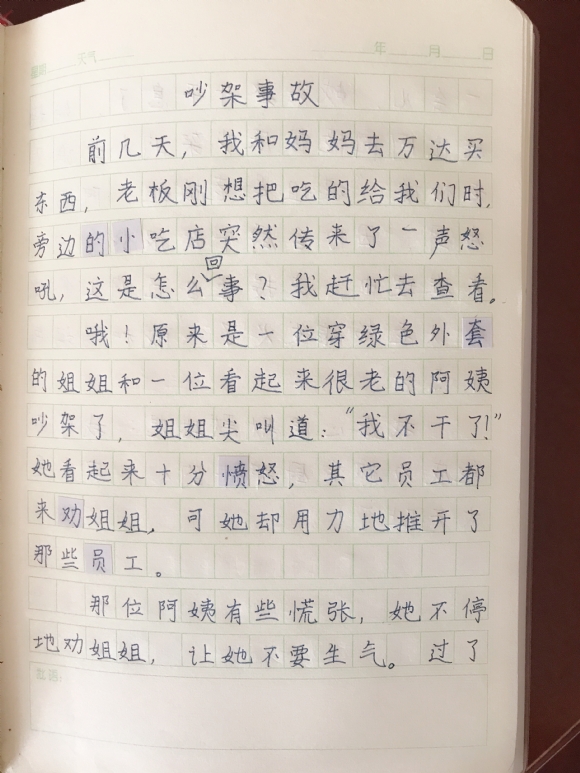 天气 年 月 日
吵架事故
前几天，我和妈妈去万达买
东西，老板刚想把吃的给我们时，
旁边的小吃店突然传来了一声怒
吼，这是怎么回事？我赶忙去查看。
哦！原来是一位穿绿色外套
的姐姐和一位看起来很老的阿姨
吵架了，姐姐尖叫道：“我不干了！”
她看起来十分愤怒，其它员工都
来劝姐姐，可她却用力地推开了
那些员工。
那位阿姨有些慌张，她不停
地劝姐姐，让她不要生气。过了